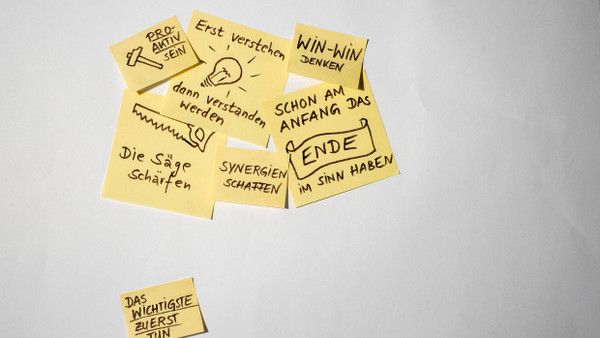 PRO-
AKTIV
SEIN
Erst verstehen
dann verstanden
werden
WIN-WIN
DENKEN
Die Säge
schärfen
SYNERGIEN
SCHATTEN
SCHON AM
ANFANG DAS
ENDE
IM SINN HABEN
DAS
WICHTIGSTE
ZUERST
TUN